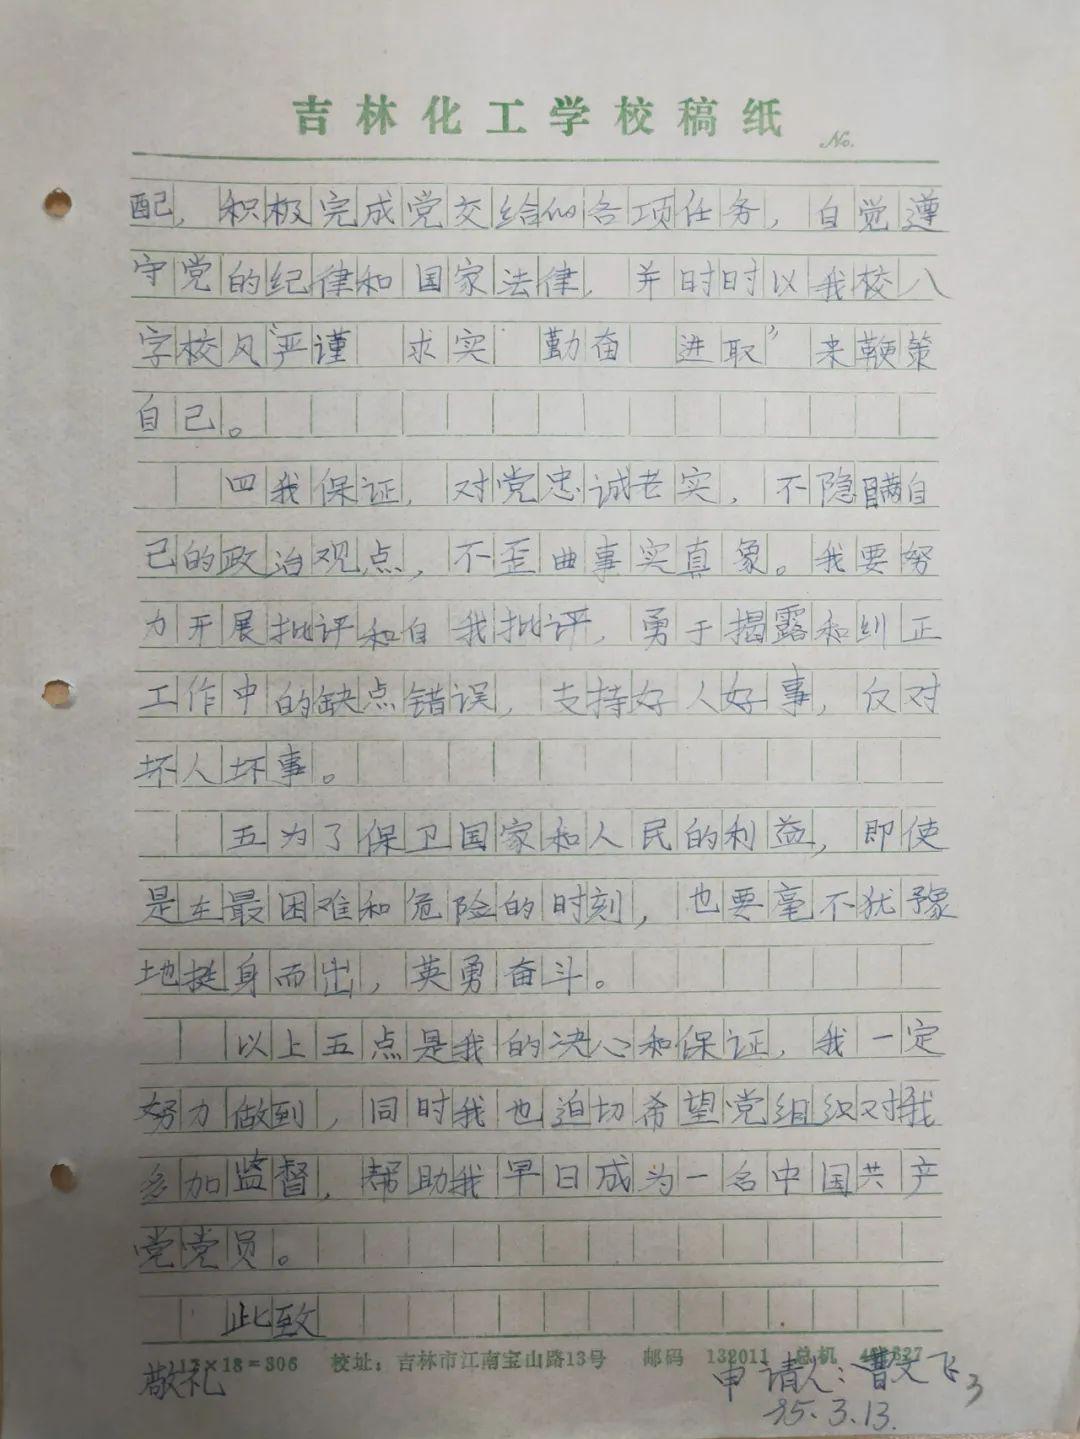 吉林化工学校稿纸
No.
配，积极完成党交给的各项任务，自觉遵
守党的纪律和国家法律，并时时以我校八
字校风“严谨 求实 勤奋 进取”来鞭策
自己。
四我保证，对党忠诚老实，不隐瞒自
己的政治观点，不歪曲事实真象。我要努
力开展批评和自我批评，勇于揭露和纠正
工作中的缺点错误，支持好人好事，反对
坏人坏事。
五为了保卫国家和人民的利益，即使
是在最困难和危险的时刻，也要毫不犹豫
地挺身而出，英勇奋斗。
以上五点是我的决心和保证，我一定
努力做到，同时我也迫切希望党组织对我
多加监督，帮助我早日成为一名中国共产
党党员。
此致
17×18=306 校址：吉林市江南宝山路13号 邮码 132011 总机
敬礼
申请人：曹文飞
95.3.13.
3